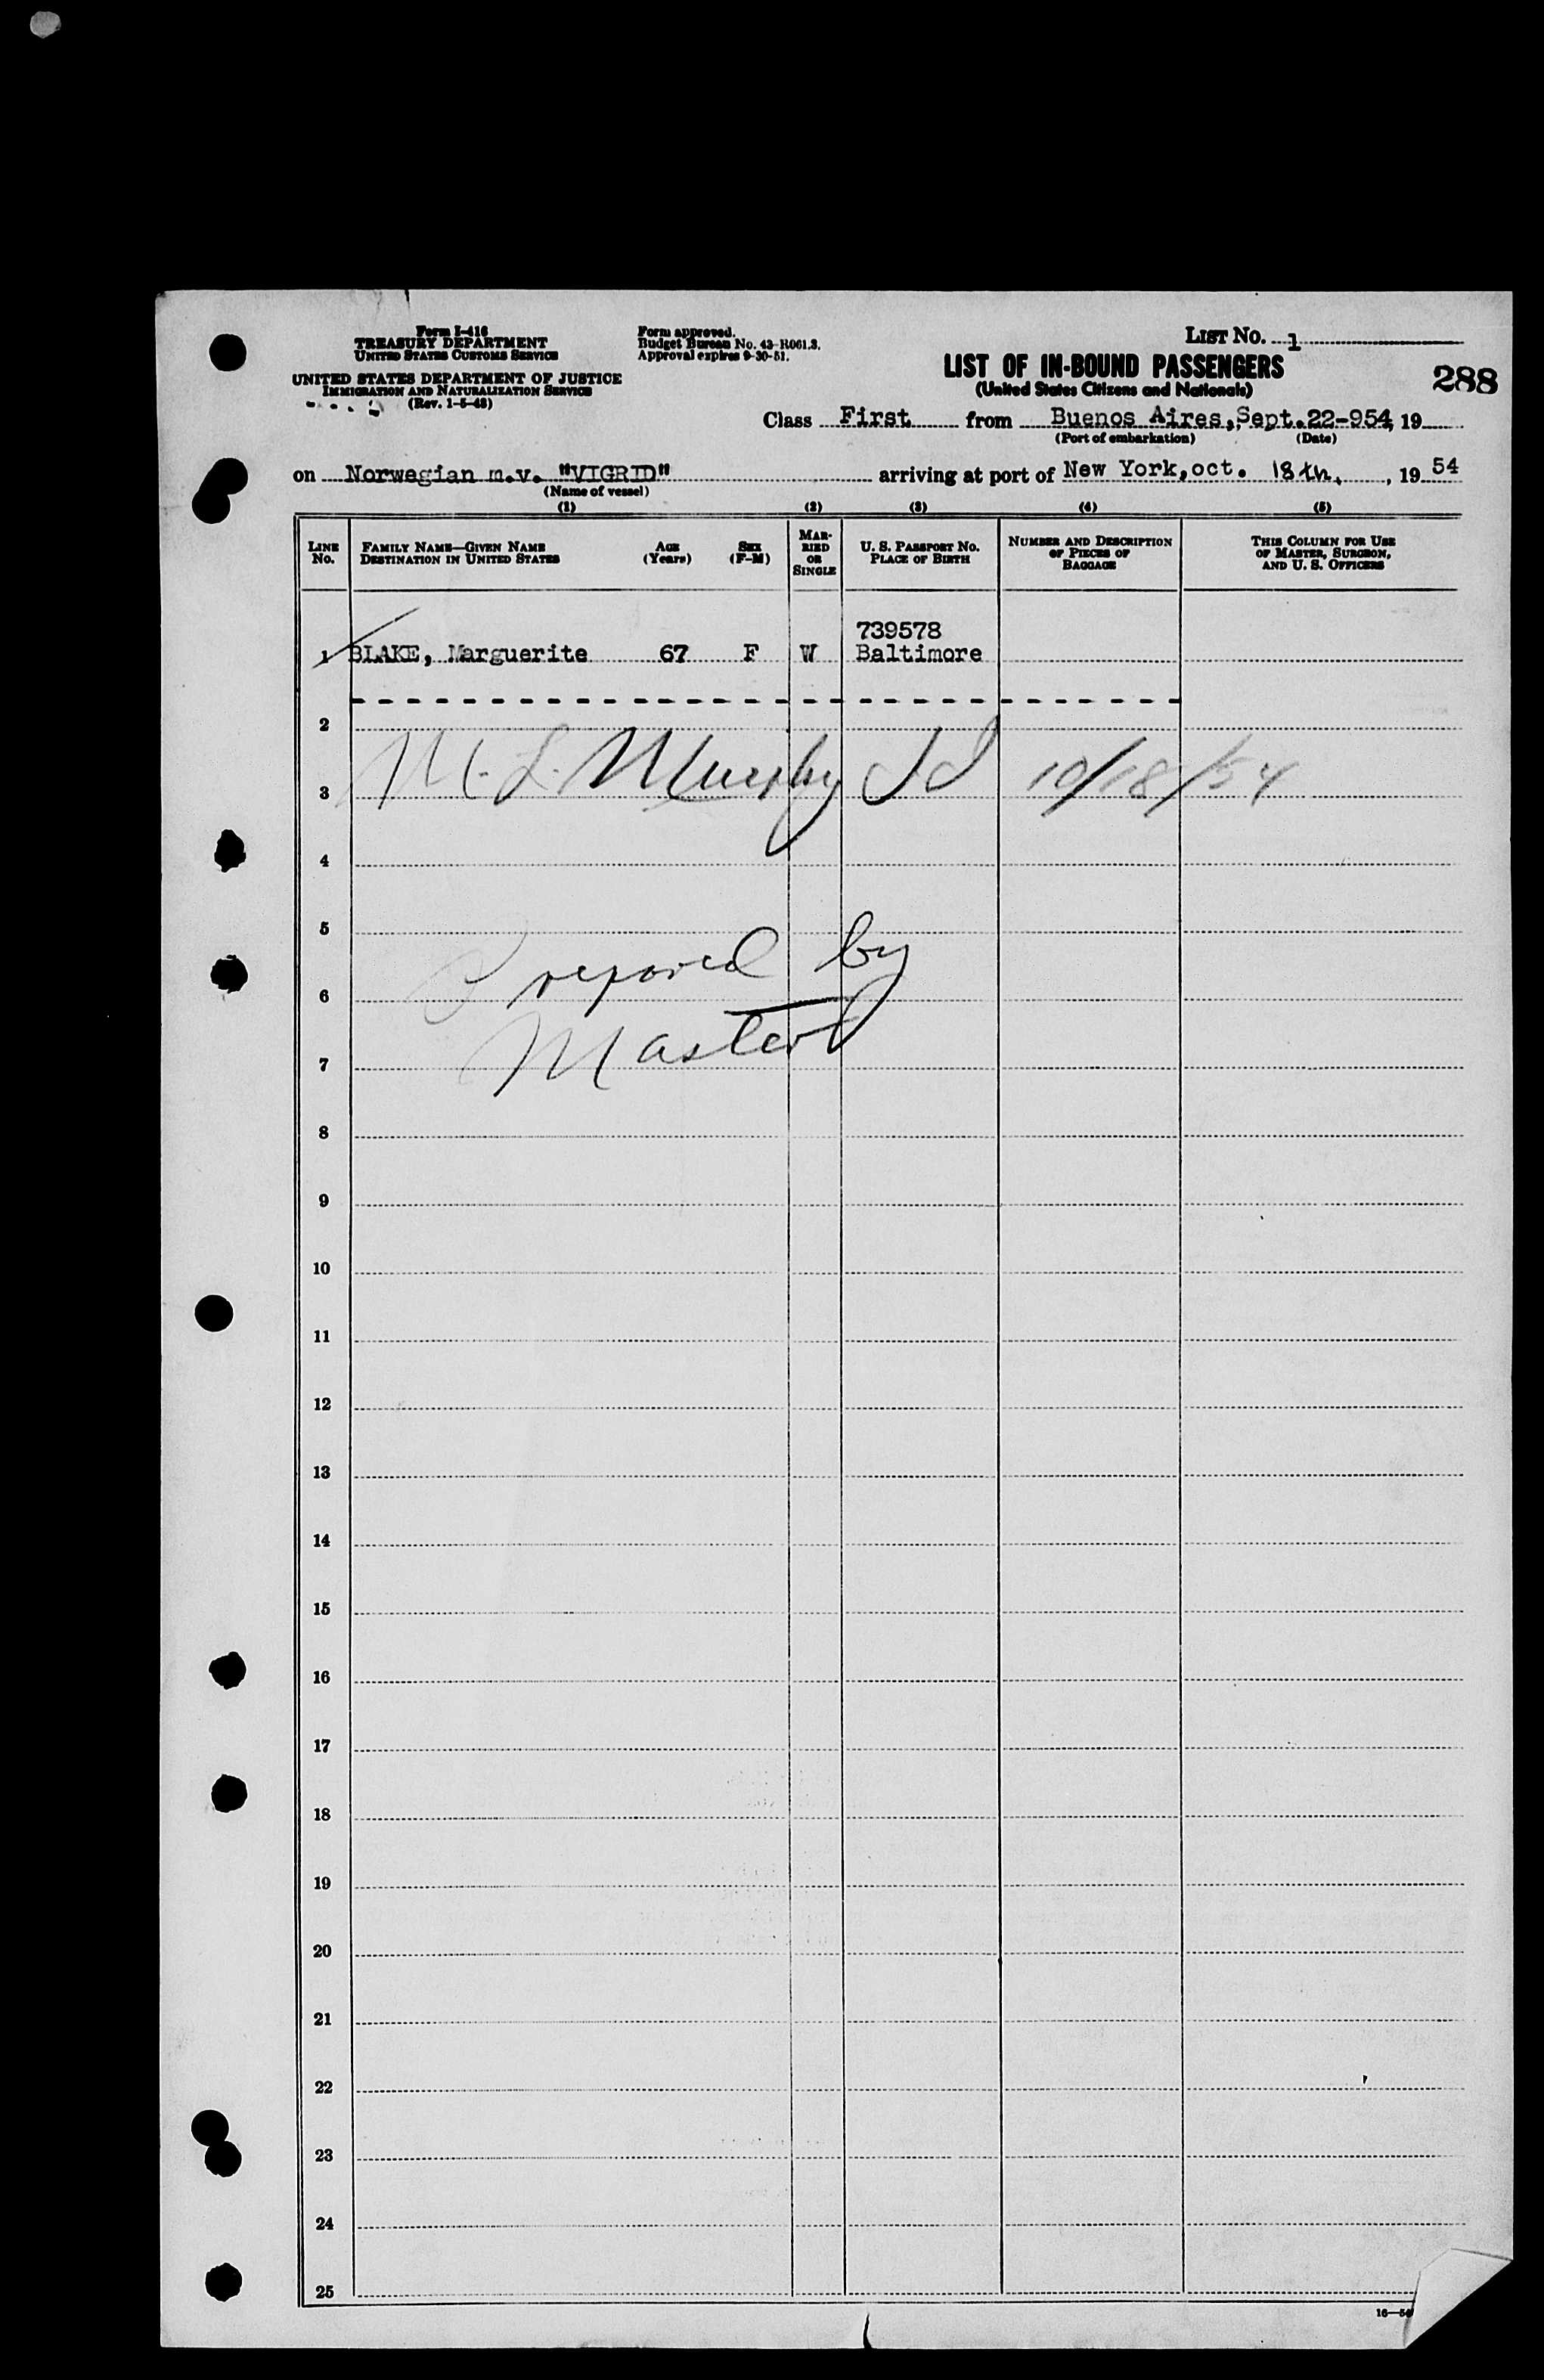 Form I-416
TREASURY DEPARTMENT
UNITED STATES CUSTOMS SERVICE
UNITED STATES DEPARTMENT OF JUSTICE
IMMIGRATION AND NATURALIZATION SERVICE
(Rev. 1-5-48)
Form approved.
Budget Bureau No. 43-R061.3.
Approval expires 9-30-51.
LIST No. 1
LIST OF IN-BOUND PASSENGERS
(United States Citizens and Nationals)
288
Class First from Buenos Aires, Sept. 22-954, 19
(Port of embarkation) (Date)
on Norwegian m.v. "VIGRID" arriving at port of New York, oct. 18th, , 19 54
(Name of vessel)
(1) (2) (3) (4) (5)
LINE No. FAMILY NAME—GIVEN NAME DESTINATION IN UNITED STATES AGE (Years) SEX (F-M) MARRIED OR SINGLE U. S. PASSPORT No. PLACE OF BIRTH NUMBER AND DESCRIPTION OF PIECES OF BAGGAGE THIS COLUMN FOR USE OF MASTER, SURGEON, AND U. S. OFFICERS
739578
1 BLAKE, Marguerite 67 F W Baltimore
2
M. L. Murphy 10/18/54
3
4
5
Prepared by
6
Master
7
8
9
10
11
12
13
14
15
16
17
18
19
20
21
22
23
24
25